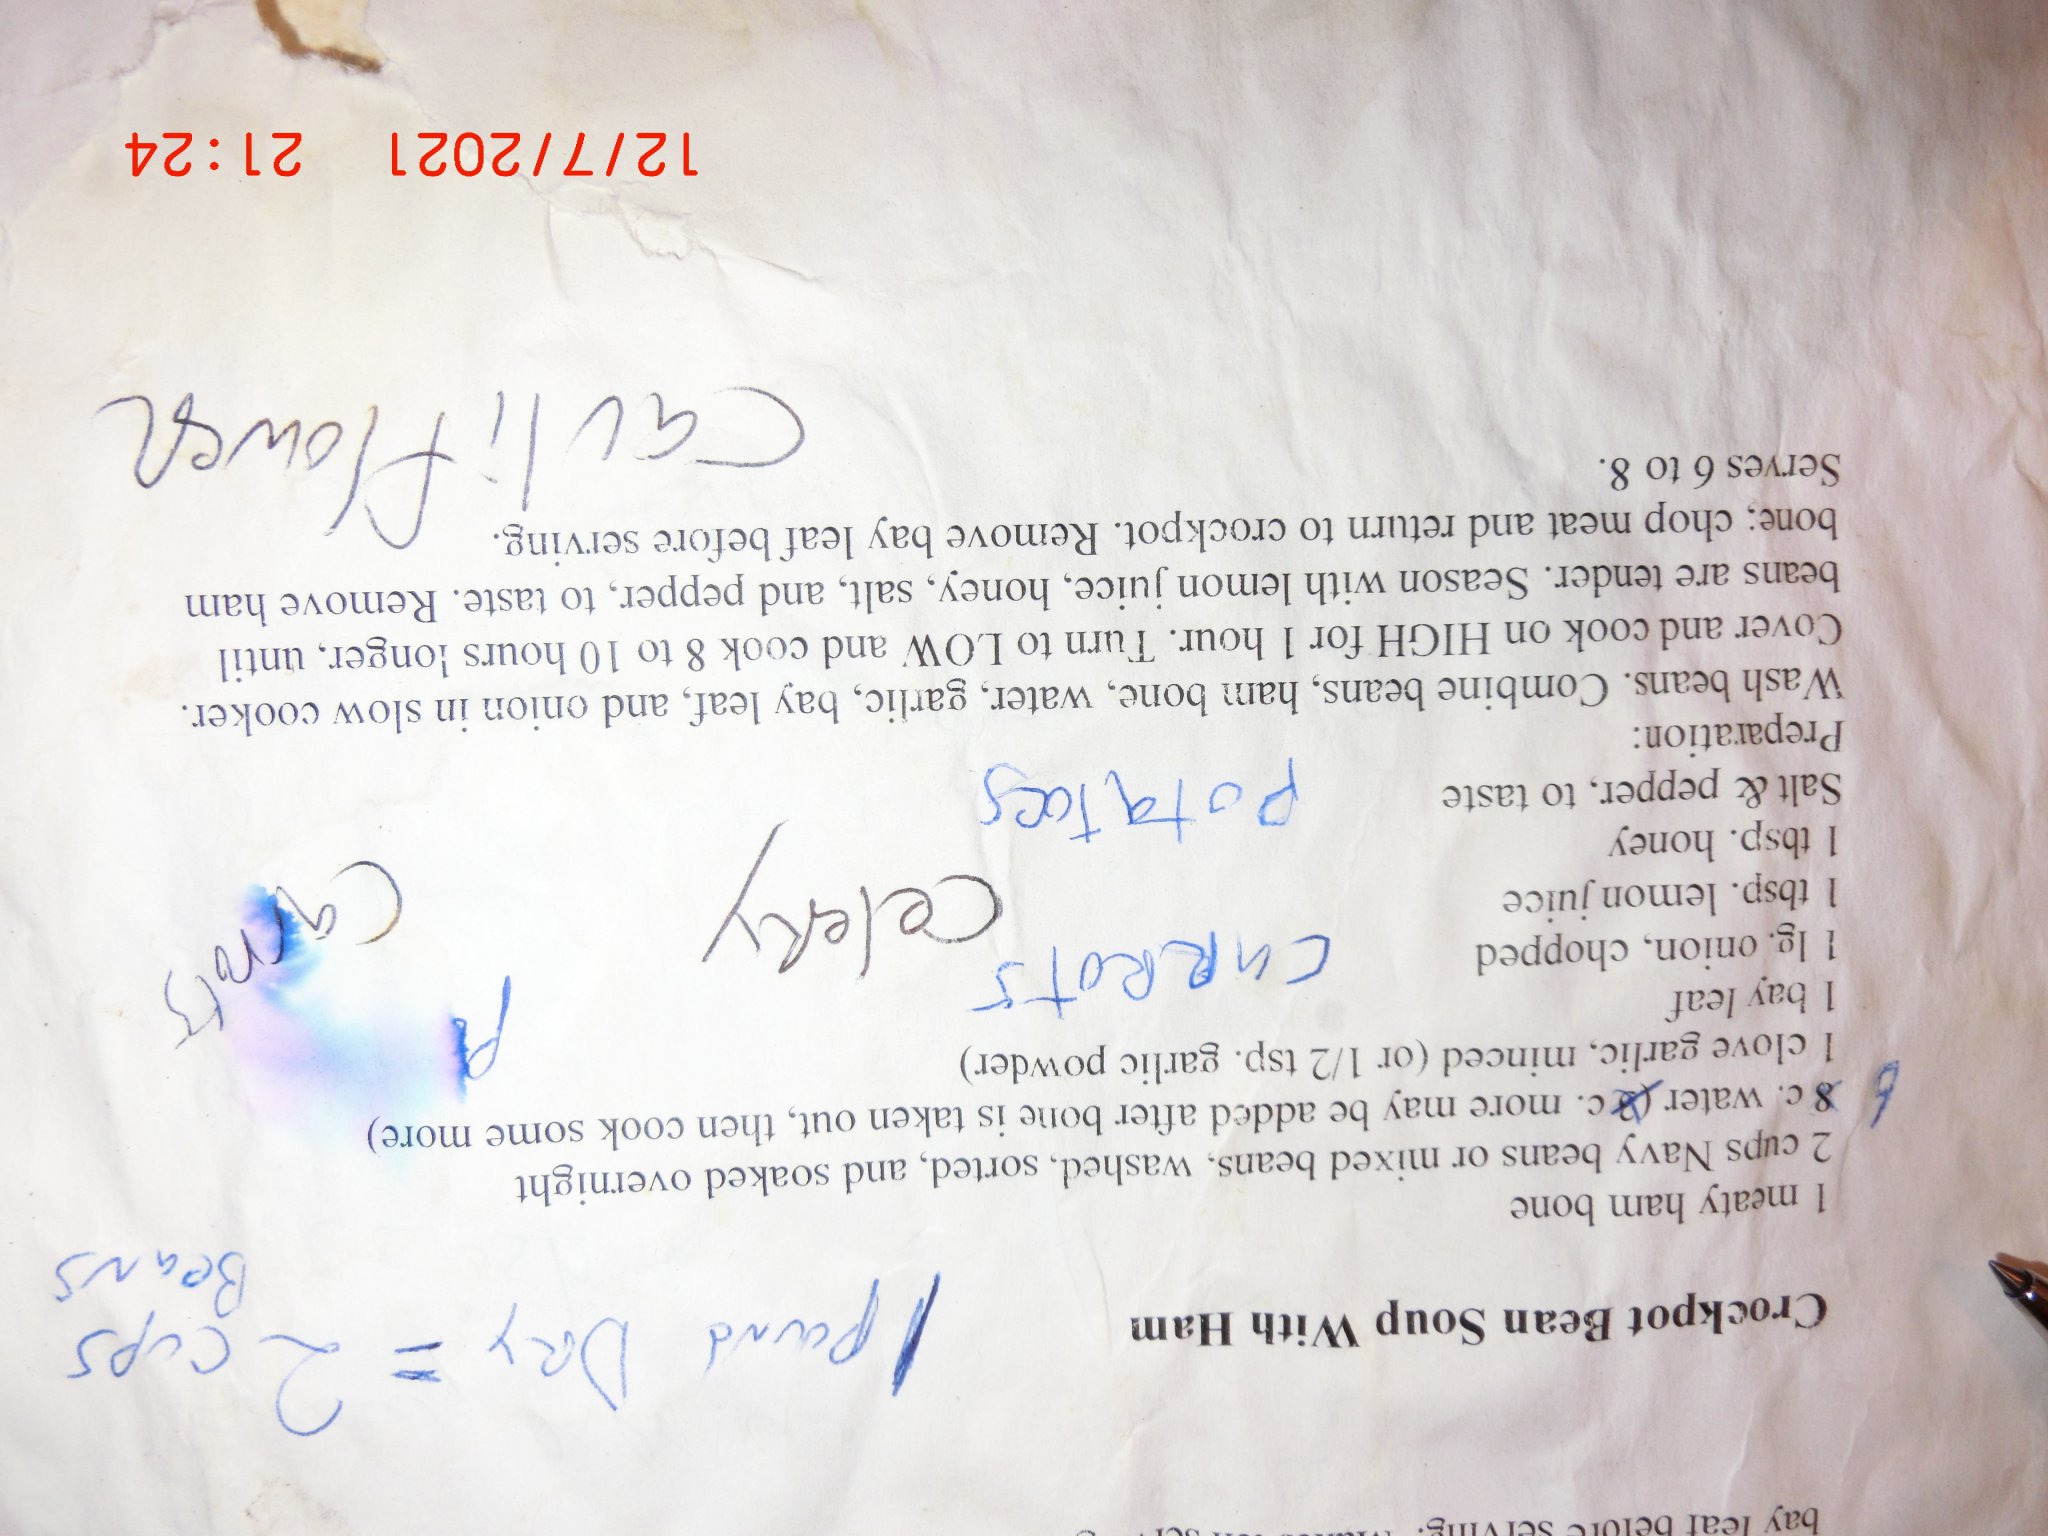 bay leaf before serving.
1 pound DRY = 2 cups
Beans
Crockpot Bean Soup With Ham
1 meaty ham bone
2 cups Navy beans or mixed beans, washed, sorted, and soaked overnight
8 c. water (2 c. more may be added after bone is taken out, then cook some more)
1 clove garlic, minced (or 1/2 tsp. garlic powder)
1 bay leaf
CARROTS
carrots
1 lg. onion, chopped
celery
1 tbsp. lemon juice
1 tbsp. honey
potatoes
Salt & pepper, to taste
Preparation:
Wash beans. Combine beans, ham bone, water, garlic, bay leaf, and onion in slow cooker.
Cover and cook on HIGH for 1 hour. Turn to LOW and cook 8 to 10 hours longer, until
beans are tender. Season with lemon juice, honey, salt, and pepper, to taste. Remove ham
bone; chop meat and return to crockpot. Remove bay leaf before serving.
Serves 6 to 8.
Cauliflower
12/7/2021 21:24